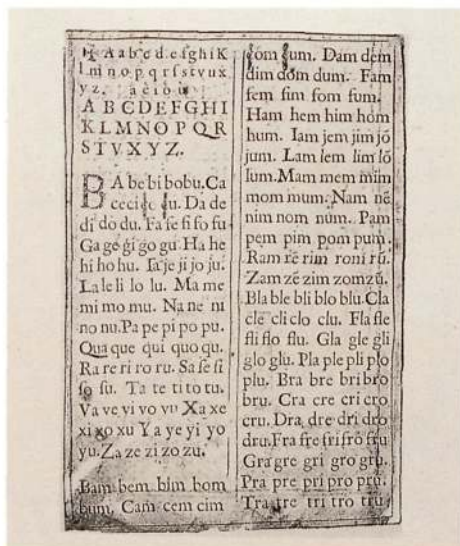 A a b c d e f g h i K
l m n o p q r s s t v u x
y z. a e i o u
A B C D E F G H I
K L M N O P Q R
S T V X Y Z.
BA be bi bobu. Ca
ce ci ço çu. Da de
di do du. Fa fe fi fo fu
Ga ge gi go gu Ha he
hi ho hu. Ia je ji jo ju.
La le li lo lu. Ma me
mi mo mu. Na ne ni
no nu. Pa pe pi po pu.
Qua que qui quo qu.
Ra re ri ro ru. Sa se si
so su. Ta te ti to tu.
Va ve vi vo vu Xa xe
xi xo xu Ya ye yi yo
yu. Za ze zi zo zu.
Bam bem bim bom
bum. Cam cem cim
çom çum. Dam dem
dim dom dum. Fam
fem fim fom fum.
Ham hem him hom
hum. Iam jem jim jõ
jum. Lam lem lim lõ
lum. Mam mem mim
mom mum. Nam nẽ
nim nom num. Pam
pem pim pom pum.
Ram rẽ rim roni rũ.
Zam zẽ zim zom zũ.
Bla ble bli blo blu. Cla
cle cli clo clu. Fla fle
fli flo flu. Gla gle gli
glo glu. Pla ple pli plo
plu. Bra bre bri bro
bru. Cra cre cri cro
cru. Dra dre dri dro
dru. Fra fre fri fro fru
Gra gre gri gro gru.
Pra pre pri pro pru.
Tra tre tri tro tru